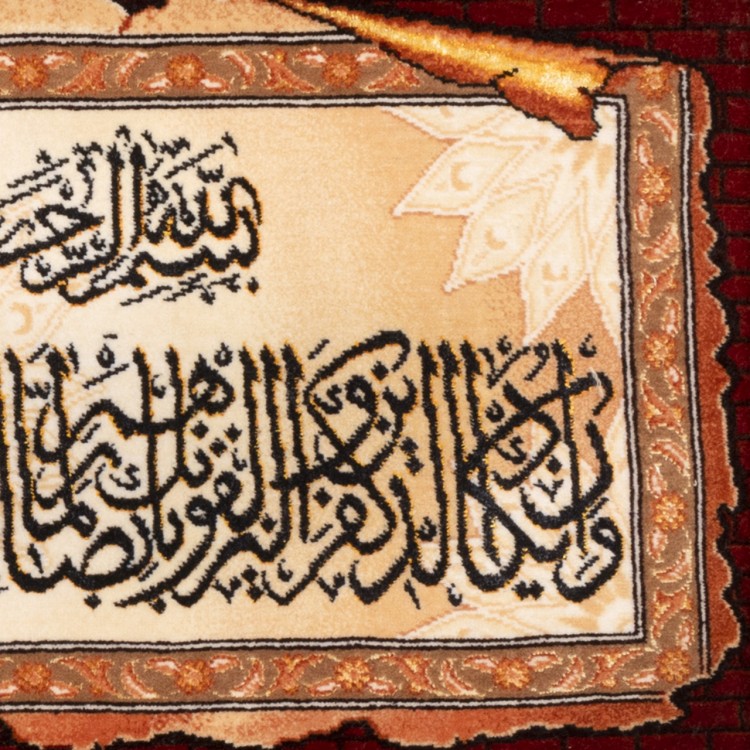 بسم الله الرحمـ
وان يكاد الذين كفروا ليزلقونك بابصارهم لما